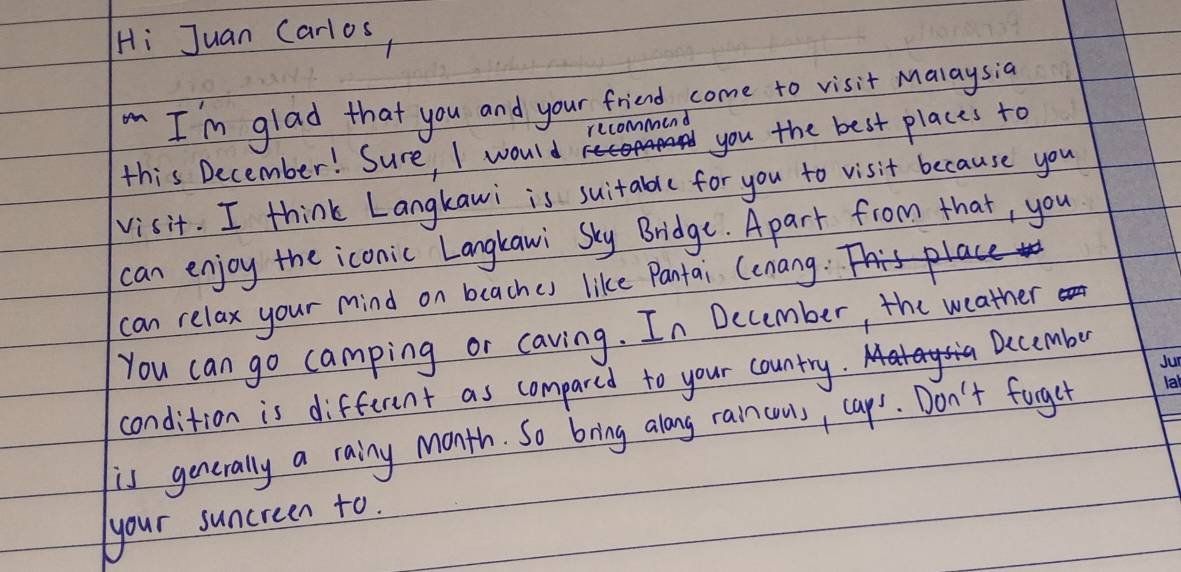 Hi Juan Carlos,
I'm glad that you and your friend come to visit Malaysia
this December! Sure, I would recommend you the best places to
visit. I think Langkawi is suitable for you to visit because you
can enjoy the iconic Langkawi Sky Bridge. Apart from that, you
can relax your mind on beaches like Pantai Cenang. This place
You can go camping or caving. In December, the weather
condition is different as compared to your country. Malaysia December
is generally a rainy month. So bring along raincoats, caps. Don't forget
your suncreen to.
Jur
lal